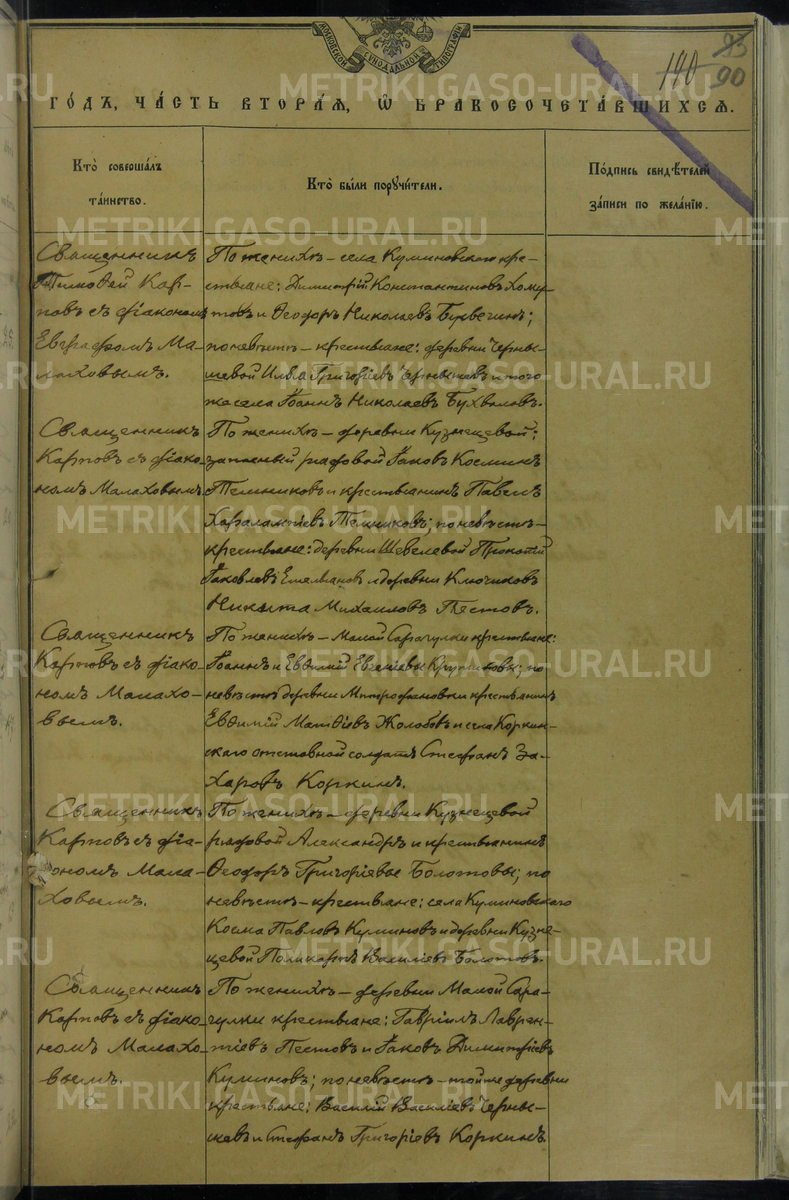 МОСКОВСКОЙ СѴНОДАЛЬНОЙ ТИПОГРАФІИ
93
110 90
METRIKI.GASO-URAL.RU
ГО́ДЪ, ЧА́СТЬ ВТОРА́Ѧ, Ѽ БРАКОСОЧЕТА́ВШИХСѦ.
Кто̀ совершáлъ
тáинство.
Кто̀ бы́ли порꙋчи́тели.
По́дпись свидѣ́телей
зáписи по желáнїю.
Священникъ
Тимофей Кар-
повъ съ діакономъ
Евграфомъ Ма-
лаховымъ.
По женихѣ – села Куминовскаго кре-
стьяне: Димитрій Константиновъ Хому-
товъ и Ѳеодоръ Николаевъ
по невѣстѣ – крестьяне: деревни Черны-
шевой Илья Григоріевъ Чернышевъ и того
же села Іоаннъ Николаевъ Бухваловъ.
Священникъ
Карповъ съ діако-
номъ Малаховымъ
По женихѣ – деревни Кузнецовой:
запасный рядовой Іаковъ Косминъ
Темниковъ и крестьянинъ Павелъ
Харалампіевъ Темниковъ; по невѣстѣ –
крестьяне: деревни Шевелевой Прокопій
Іаковлевъ Емельяновъ и деревни Ключиковъ
Никита Михаиловъ Пестовъ.
Священникъ
Карповъ съ діако-
номъ Малахо-
вымъ.
По женихѣ – Малой Сарагулки крестьяне:
Іоаннъ и Евѳимій Евгеніевы; по
невѣстѣ деревни Митрофановки крестьянинъ
Евѳимій Матѳіевъ Жолобовъ и села Коркин-
скаго отставной солдатъ Стефанъ За-
харовъ Коркинъ.
Священникъ
Карповъ съ діа-
кономъ Мала-
ховымъ.
По женихѣ – деревни Кузнецовой
рядовой Александръ и крестьянинъ
Ѳеодоръ Григоріевы Болотовы; по
невѣстѣ – крестьяне: села Куминовскаго
Косма Павловъ Куминовъ и деревни Кузне-
цовой Поликарпъ Василіевъ Болотовъ.
Священникъ
Карповъ съ діако-
номъ Малахо-
вымъ.
По женихѣ – деревни Малой Сара-
гулки крестьяне: Гавріилъ Лаврен-
тіевъ Пестовъ и Іаковъ Димитріевъ
Куминовъ; по невѣстѣ – той же деревни
крестьяне: Василій Василіевъ Черны-
шевъ и Стефанъ Григоріевъ Коркинъ.